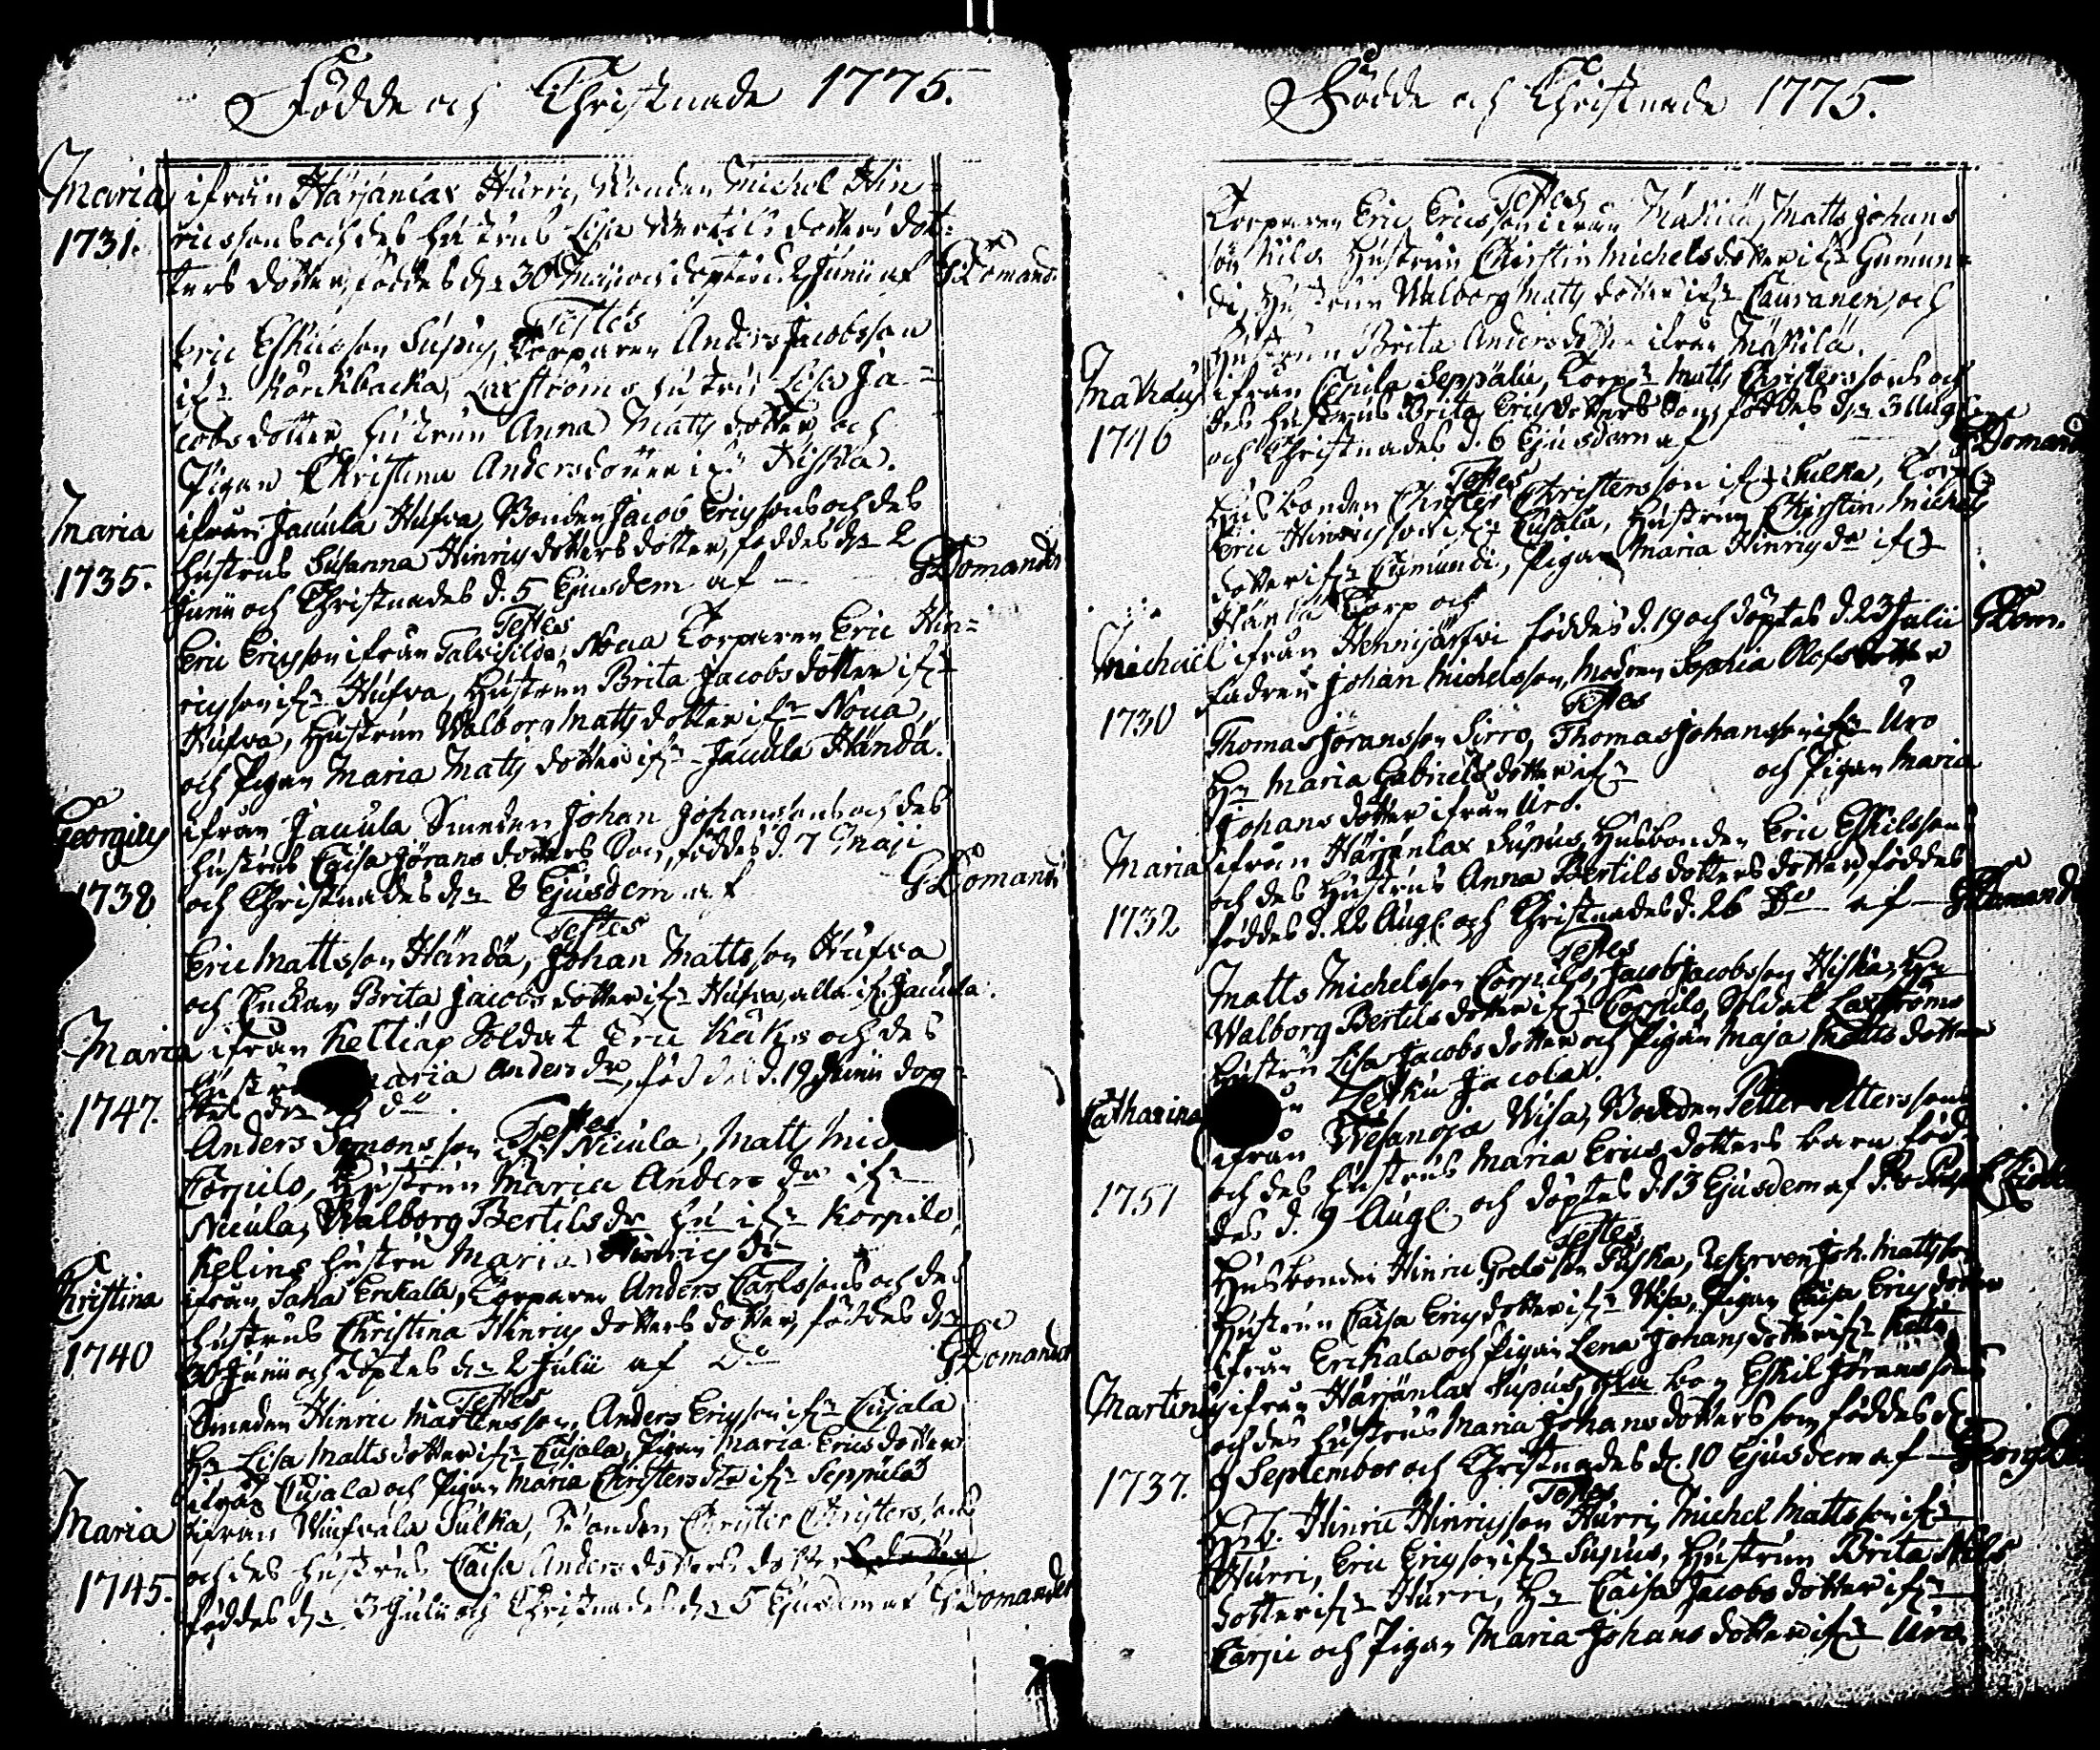 Födde och Christnade 1775.
Maria ifrån Härjänlax Hurri, Bonden Michel Hin=
1731. ricssons och des hustrus Lisa Bertils dotters dot=
ters dotter, föddes d:n 30 Maji och döptes d. 2 Junii af GDomand:
Testes
Eric Eskilsson Supus, Torparen Anders Jacobsson
if:n Körckbacka, Laxströms hustru Lisa Ja=
cobs dotter, hustrun Anna Mats dotter och
Pigan Christina Andersdotter if:n Hiskia.
Maria ifrån Jacula Hufva, Bonden Jacob Ericssons och des
1735. hustrus Susanna Hinrics dotters dotter, föddes d:n 2
Junii och Christnades d. 5 Ejusdem af GDomander
Testes
Eric Ericsson ifrån Noua Torparen Eric Hin=
ricsson if:n Hufva, Hustrun Brita Jacobs dotter if:n
Hufva, Hustrun Walborg Mats dotter if:n Noua,
och Pigan Maria Mats dotter if:n Jacula Händä.
Georgius ifrån Jacula Smeden Johan Johanssons och des
1738 hustrus Caisa Jörans dotters Son, föddes d. 7 Maji
och Christnades d:n 8 Ejusdem af GDomand:
Testes
Eric Mattsson Händä, Johan Mattsson Hufva
och Enckan Brita Jacobs dotter if:n Hufva, alla if:n Jacula.
Maria ifrån Keltiäp Soldat Eric Käkis och des
Hustru Maria Anders dr, föddes d. 19 Junii döp=
1747. tes d:n d:o
Testes
Anders Simonsson if:n Nicula, Matts Mic
Corpilo, Hustrun Maria Anders dr if:n
Nicula, Walborg Bertils dr hu if:n Korpilo,
Kelins hustru Maria Hinrics dr
Christina ifrån Saha Erckala, Torparen Anders Carlssons och des
hustrus Christina Hinrics dotters dotter, föddes d:n
1740 30 Junii och döptes d:n 2 Julii af GDomander
Testes
Smeden Hinric Mårtensson, Anders Ericsson if:n Cujala
H:n Lisa Matts dotter if:n Cujala, Pigan Maria Erics dotter
ifrån Cujala och Pigan Maria Christers dr if:n Seppälä
Maria ifrån Sulka, Bonden Christer Christerssons
och des hustrus Caisa Anders dotters dotter
1745. föddes d:n 3 Julii och Christnades d:n 5 Ejusdem af GDomander
Födde och Christnade 1775.
Testes
Torparen Eric Ericsson ifrån Mäkilä, Matts Johans
son Kilo, Hustrun Christin Michels dotter if:n Gumun=
di, Hustrun Walborg Mats dotter if:n Lauranen, och
Hustrun Brita Anders dotter ifrån Mäkilä.
Matthæus ifrån Seppälä, Torp:n Matts Christerssons och
des hustrus Brita Erics dotters Son, föddes d:n 3 Aug:
1746 och Christnades d. 6 Ejusdem af GDomand
Testes
Husbonden Christer Christersson if:n Sulka, Torp:
Eric Hinricsson if:n Cujala, Hustrun Christin Michels
dotter if:n Cumundi, Pigan Maria Hinrics dr if:n
Händä Torp och
Michaël ifrån Hennijärfvi föddes d. 19 och döptes d. 23 Julii GDom.
1730 Fadren Johan Michelsson, Modren Sophia Olofs dotter
Testes
Thomas Jöransson Sirro, Thomas Johansson if:n Uro
H:n Maria Gabriels dotter if:n och Pigan Maria
Johans dotter ifrån Uro.
Maria ifrån Härjänlax Supus, Husbonden Eric Eskilssons
och des Hustrus Anna Bertils dotters dotter, föddes
1732 föddes d. 22 Aug: och Christnades d. 26 D:o af GDomand
Testes
Matts Michelsson Corpilo, Jacob Jacobsson Hiskia, H:n
Walborg Bertils dotter if:n Corpilo, Soldat Laxströms
Hustru Lisa Jacobs dotter och Pigan Maja Matts dotter
Jacolax.
Catharina ifrån Wesanoja Wisa, Bonden Petter Petterssons
och des hustrus Maria Erics dotters barn född=
1751 des d. 9 Aug: och döptes d. 13 Ejusdem af
Testes
Husbonden Hinric Grelsson Puska, Reserven Joh. Mattsson
Hustrun Caisa Erics dotter if:n Wisa, Pigan Caisa Erics dotter
ifrån Erckala och Pigan Lena Johans dotter if:n
Martinus ifrån Härjänlax Supus, Eskil Jöranssons
och des hustrus Maria Johans dotters son föddes d.
1737. 9 September och Christnades d. 10 Ejusdem af
Testes
H.b. Hinric Hinricsson Hurri, Michel Mattsson if:n
Hurri, Eric Ericsson if:n Supus, Hustrun Brita Nils
dotter if:n Hurri, H:n Caisa Jacobs dotter if:n
Carju och Pigan Maria Johans dotter if:n Uro